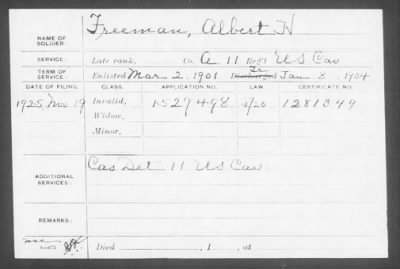 NAME OF SOLDIER: Freeman, Albert H
SERVICE: Late rank, Co. A 11 Reg't US Cav
TERM OF SERVICE: Enlisted Mar 2, 1901 Discharged Tr Jan 8, 1904
DATE OF FILING. CLASS. APPLICATION NO. LAW. CERTIFICATE NO.
1925 Nov 19 Invalid, 1527498 5/20 1281349
Widow,
Minor,
ADDITIONAL SERVICES: Cas Det 11 US Cav
REMARKS:
Died , 1 , at